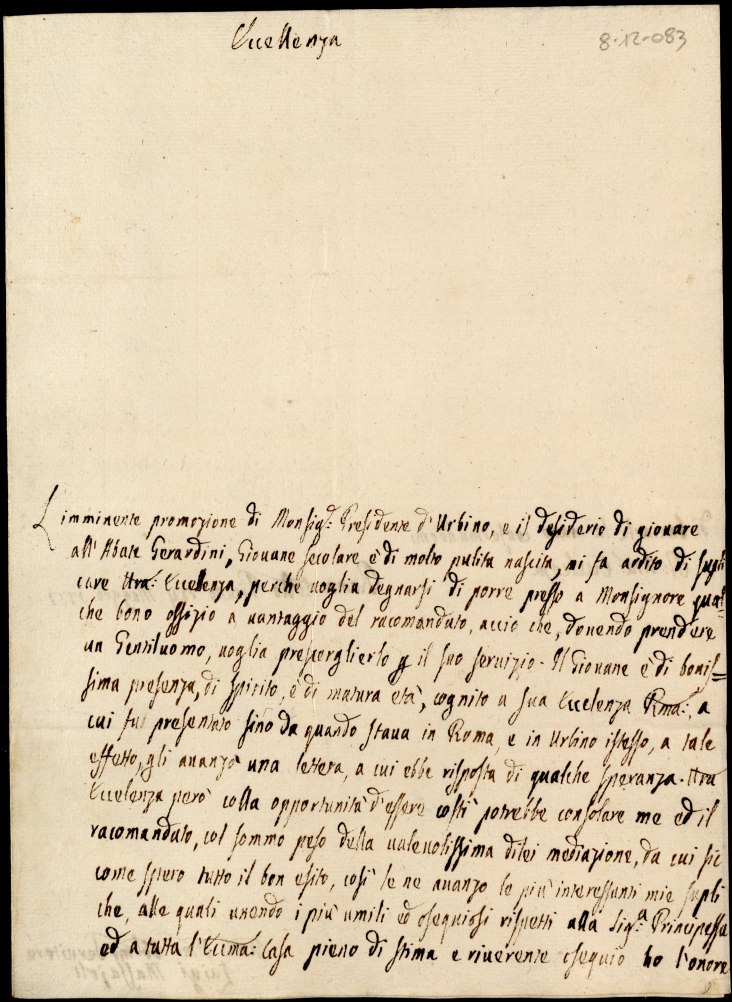 Eccellenza
8-12-083
L'imminente promozione di Monsig.r Presidente d'Urbino, e il desiderio di giovare
all'Abate Gerardini, Giovane secolare e di molto pulita nascita, mi fa ardito di supli
care Vtra: Eccellenza, perche voglia degnarsi di porre presso a Monsignore qual=
che bono offizio a vantaggio del racomandato, accio che, dovendo prendere
un Gentiluomo, voglia prescerglierlo p il suo servizio. Il Giovane è di bonis=
sima presenza, di spirito, e di matura età, cognito a sua Eccelenza Rma:, a
cui fu presentato sino da quando stava in Roma, e in Urbino istesso, a tale
effetto, gli avanzò una lettera, a cui ebbe risposta di qualche speranza. Vtra
Eccelenza però colla opportunità d'essere costì potrebbe consolare me ed il
racomandato, col sommo peso della valevolissima dilei mediazione, da cui sic
come spero tutto il bon esito, così le ne avanzo le più interessanti mie supli
che, alle quali unendo i più umili ed osequiosi rispetti alla Sig.a Principessa
ed a tutta l'Eccma: Casa pieno di stima e riverente osequio ho l'onore